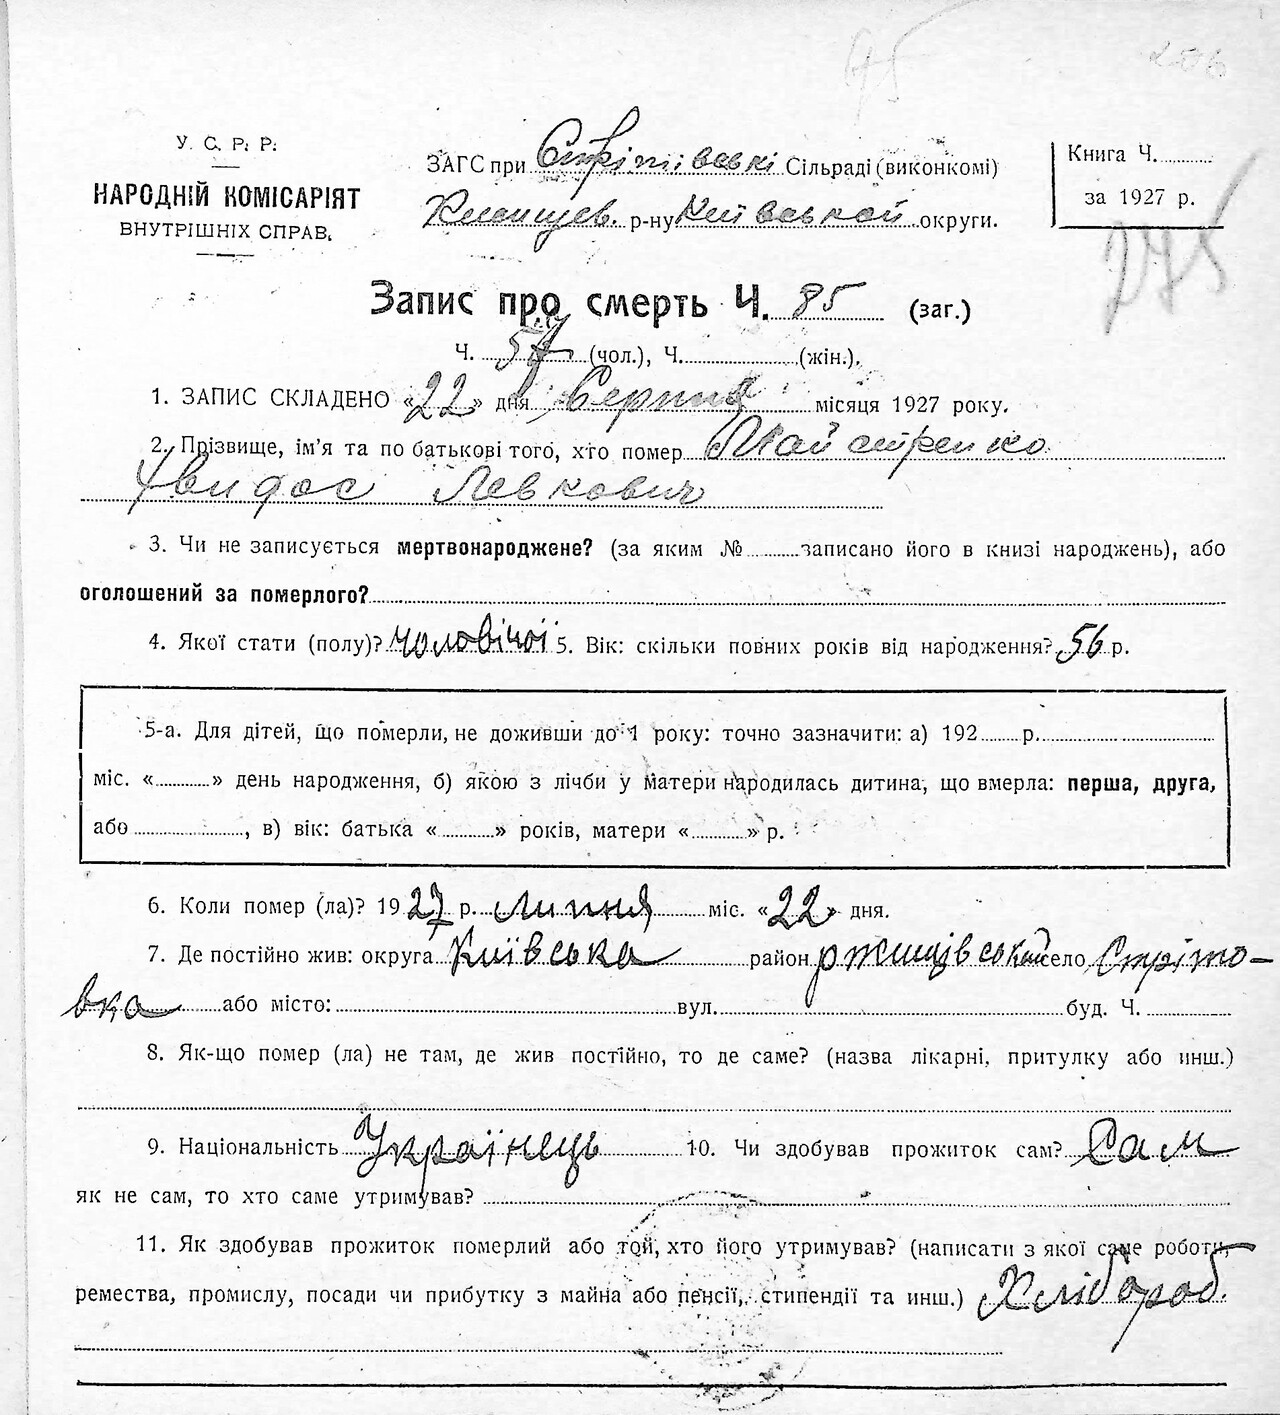 206
У. С. Р. Р.
НАРОДНІЙ КОМІСАРІЯТ
ВНУТРІШНІХ СПРАВ.
ЗАГС при Стрітівські Сільраді (виконкомі)
р-ну Київської округи.
Книга Ч.
за 1927 р.
275
Запис про смерть Ч. 85 (заг.)
Ч. 57 (чол.), Ч. (жін.).
1. ЗАПИС СКЛАДЕНО «22» дня Серпня місяця 1927 року.
2. Прізвище, ім'я та по батькові того, хто помер Майстренко
Левкович
3. Чи не записується мертвонароджене? (за яким № записано його в книзі народжень), або
оголошений за померлого?
4. Якої стати (полу)? чоловічої 5. Вік: скільки повних років від народження? 56 р.
5-а. Для дітей, що померли, не доживши до 1 року: точно зазначити: а) 192 р.
міс. « » день народження, б) якою з лічби у матери народилась дитина, що вмерла: перша, друга,
або , в) вік: батька « » років, матери « » р.
6. Коли помер (ла)? 1927 р. липня міс. «22» дня.
7. Де постійно жив: округа Київська район ржищівський село Стріто-
вка або місто: вул. буд. Ч.
8. Як-що помер (ла) не там, де жив постійно, то де саме? (назва лікарні, притулку або инш.)
9. Національність Українець 10. Чи здобував прожиток сам? Сам
як не сам, то хто саме утримував?
11. Як здобував прожиток померлий або той, хто його утримував? (написати з якої саме роботи,
ремества, промислу, посади чи прибутку з майна або пенсії, стипендії та инш.) Хлібороб.